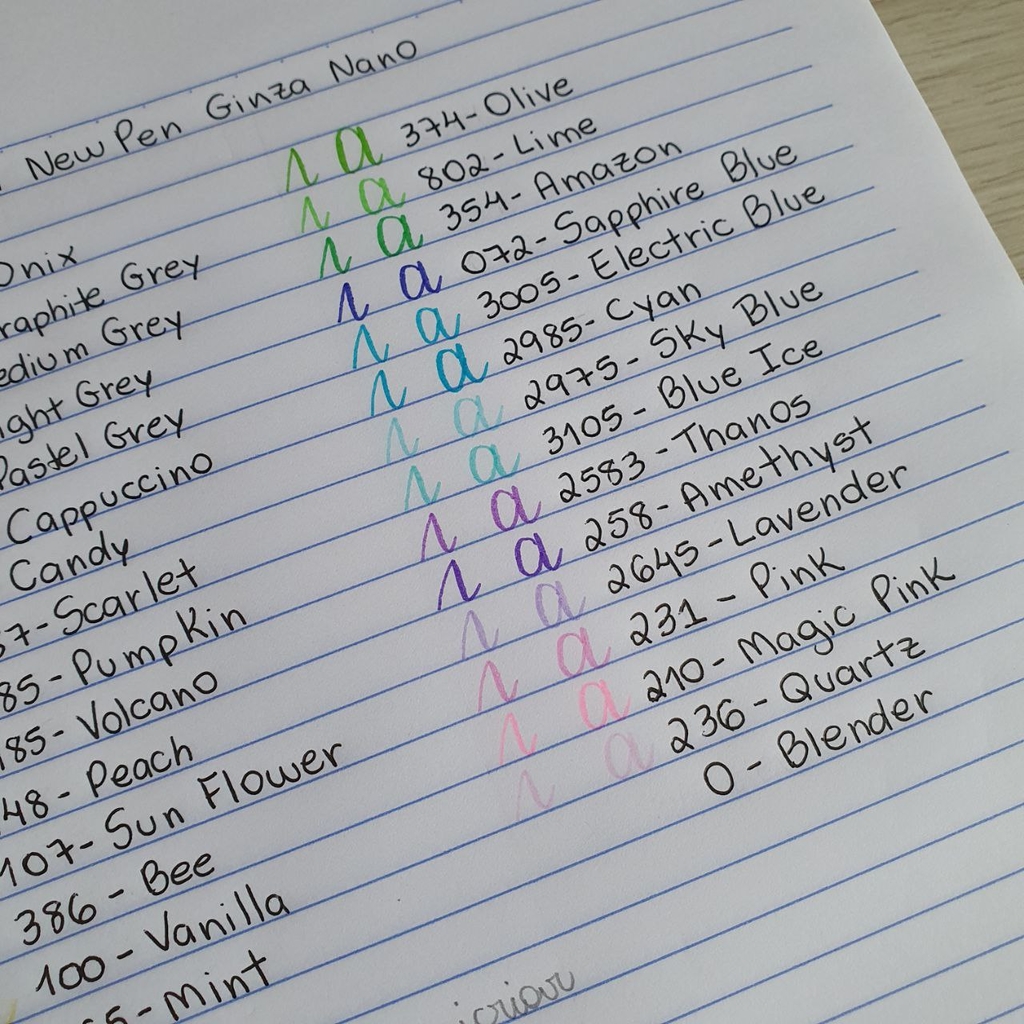 New Pen Ginza Nano
Onix
raphite Grey
edium Grey
ight Grey
Pastel Grey
Cappuccino
Candy
37-Scarlet
85-Pumpkin
185-Volcano
48-Peach
107-Sun Flower
386-Bee
100-Vanilla
65-Mint
1 a 374-Olive
1 a 802-Lime
1 a 354-Amazon
1 a 072-Sapphire Blue
1 a 3005-Electric Blue
1 a 2985-Cyan
1 a 2975-Sky Blue
1 a 3105-Blue Ice
1 a 2583-Thanos
1 a 258-Amethyst
1 a 2645-Lavender
1 a 231-Pink
1 a 210-Magic Pink
1 a 236-Quartz
0-Blender